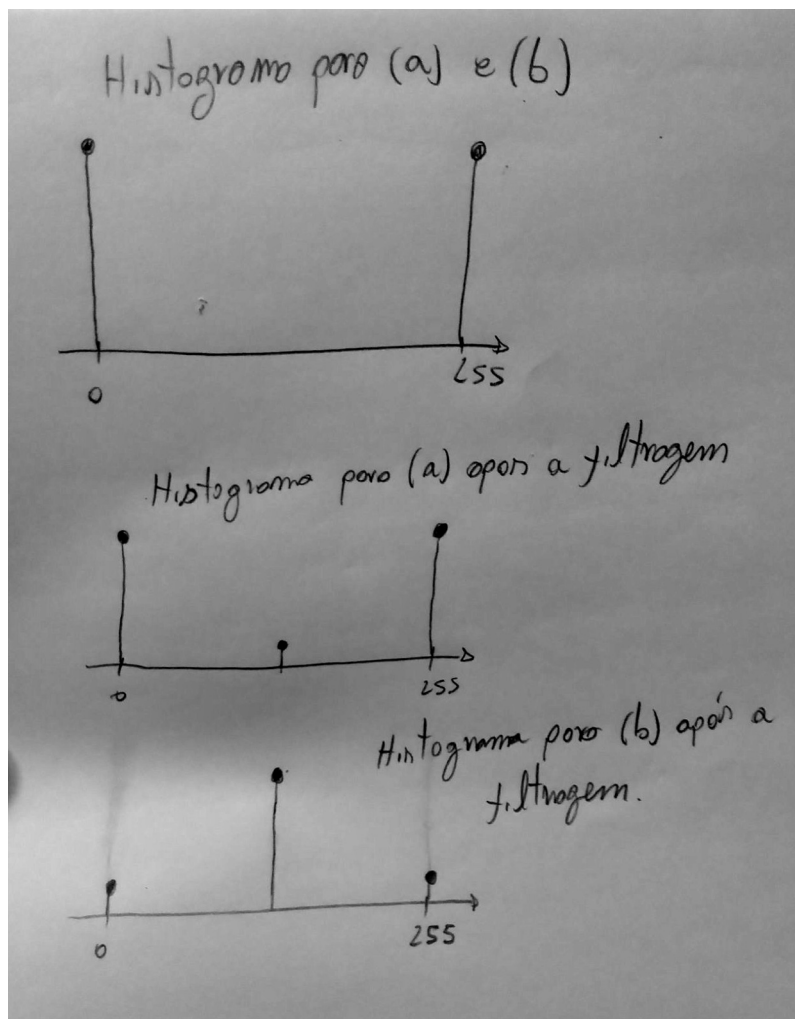 Histograma para (a) e (b)
0 255
Histograma para (a) após a filtragem
0 255
Histograma para (b) após a
filtragem.
0 255